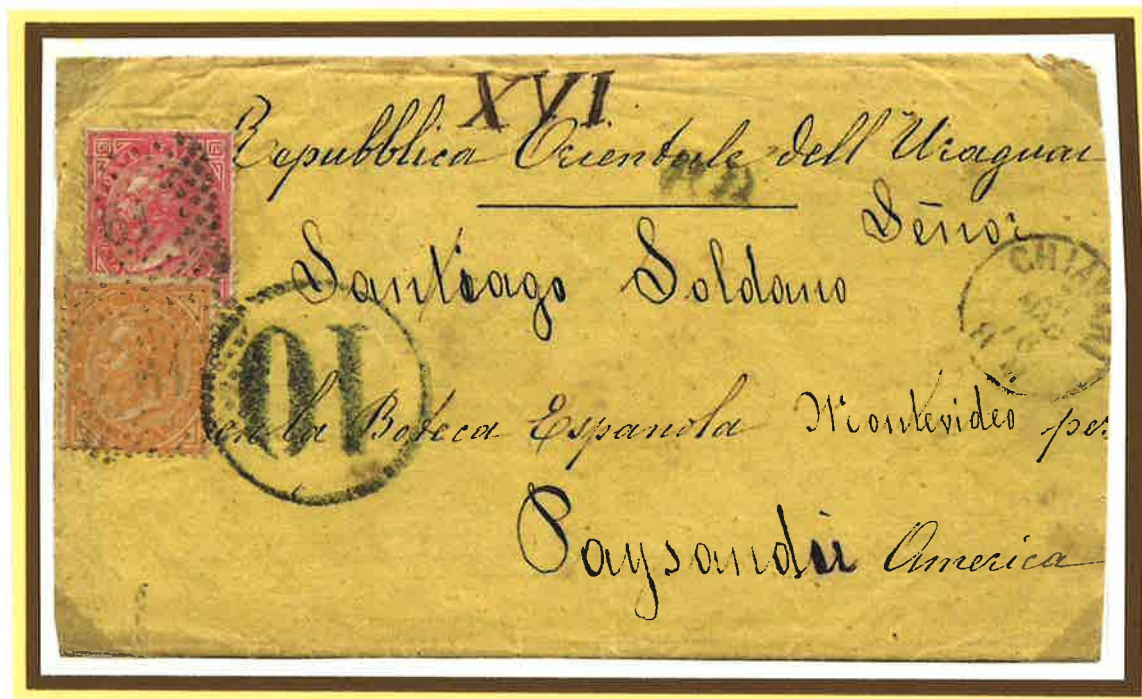 XVI
Repubblica Orientale dell'Uraguai
PD
Señor
Santiago Soldano
10
en la Boteca Española Montevideo per
Paysandù America
CHIAVARI